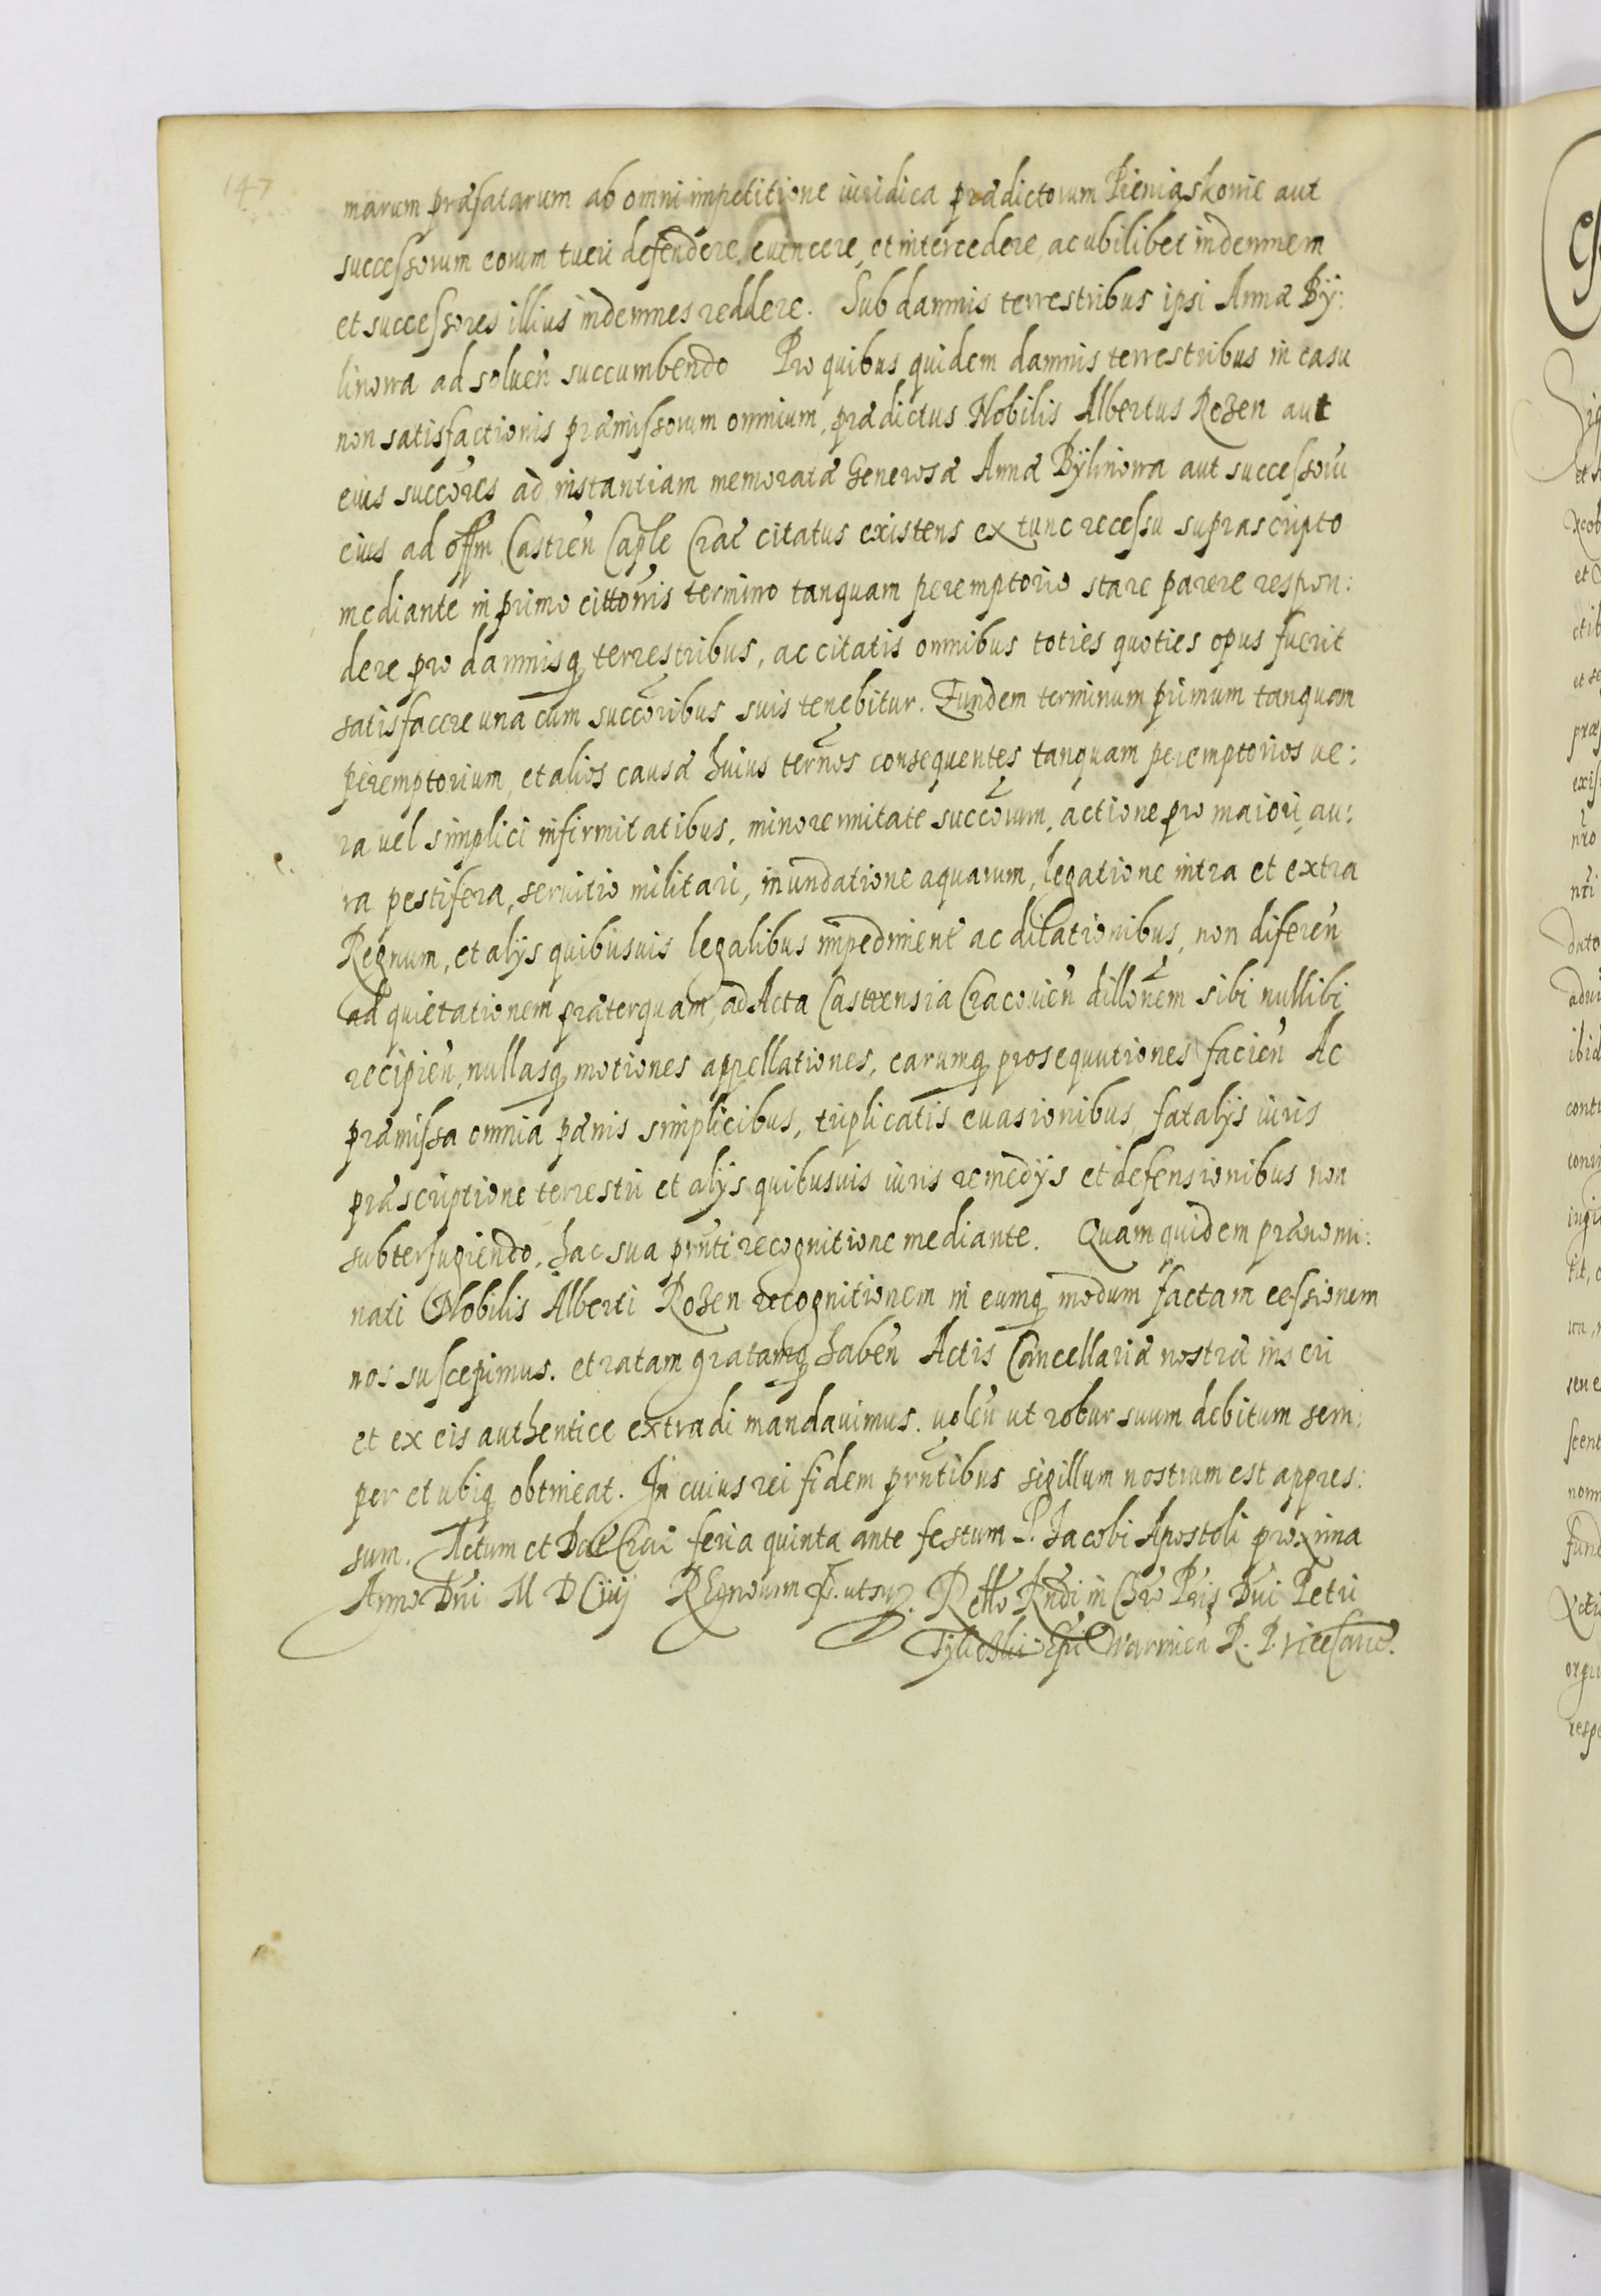 147
marum præfatarum ab omni impetitione iuridica prædictorum Pieniąskowie aut
successorum eorum tueri defendere, euincere, et intercedere, ac ubilibet indemnem
et successores illius indemnes reddere. Sub damnis terrestribus ipsi Annæ By:
linowa ad soluen̄ succumbendo Pro quibus quidem damnis terrestribus in casu
non satisfactionis præmissorum omnium, prædictus Nobilis Albertus Rozen aut
eius succōres ad instantiam memoratæ Generosæ Annæ Bylinowa aut successorū
eius ad offm Castren̄ Caple Crac̄ citatus existens ex tunc recessu suprascripto
mediante in primo cittōnis termino tanquam peremptorio stare parere respon:
dere pro damnisq terrestribus, ac citatis omnibus toties quoties opus fuerit
satisfacere una cum succōribus suis tenebitur. Eundem terminum primum tanquam
peremptorium, et alios causæ huius ternōs consequentes tanquam peremptorios ue:
ra uel simplici infirmitatibus, minorennitate succōrum, actione pro maiori, au:
ra pestifera, seruitio militari, inundatione aquarum, legatione intra et extra
Regnum, et alys quibusuis legalibus impediment̄ ac dilationibus, non diferen̄
ad quietationem præterquam, ad Acta Castrensia Cracouien̄ dillōnem sibi nullibi
recipien̄, nullasq motiones appellationes, earumq prosequutiones facien̄ Ac
præmissa omnia pænis simplicibus, triplicatis euasionibus, fatalys iuris
præscriptione terrestri et alys quibusuis iuris remedys et defensionibus non
subterfugiendo, hac sua prn̄ti recognitione mediante. Quam quidem prænomi:
nati Nobilis Alberti Rozen recognitionem in eumq modum factam cessionem
nos suscepimus. et ratam gratamq haben̄ Actis Cancellariæ nostræ inseri
et ex eis authentice extradi mandauimus. uolen̄ ut robur suum debitum sem:
per et ubiq obtineat. In cuius rei fidem prn̄tibus sigillum nostrum est appres:
sum. Actum et Dat Crac̄ feria quinta ante festum S. Jacobi Apostoli proxima
Anno Dni M D Ciiij Regnorum ut Relto Rndi in Chro Pris Dni Petri
Tylicki Epi Warmien̄ R. P. viceCanc̄.